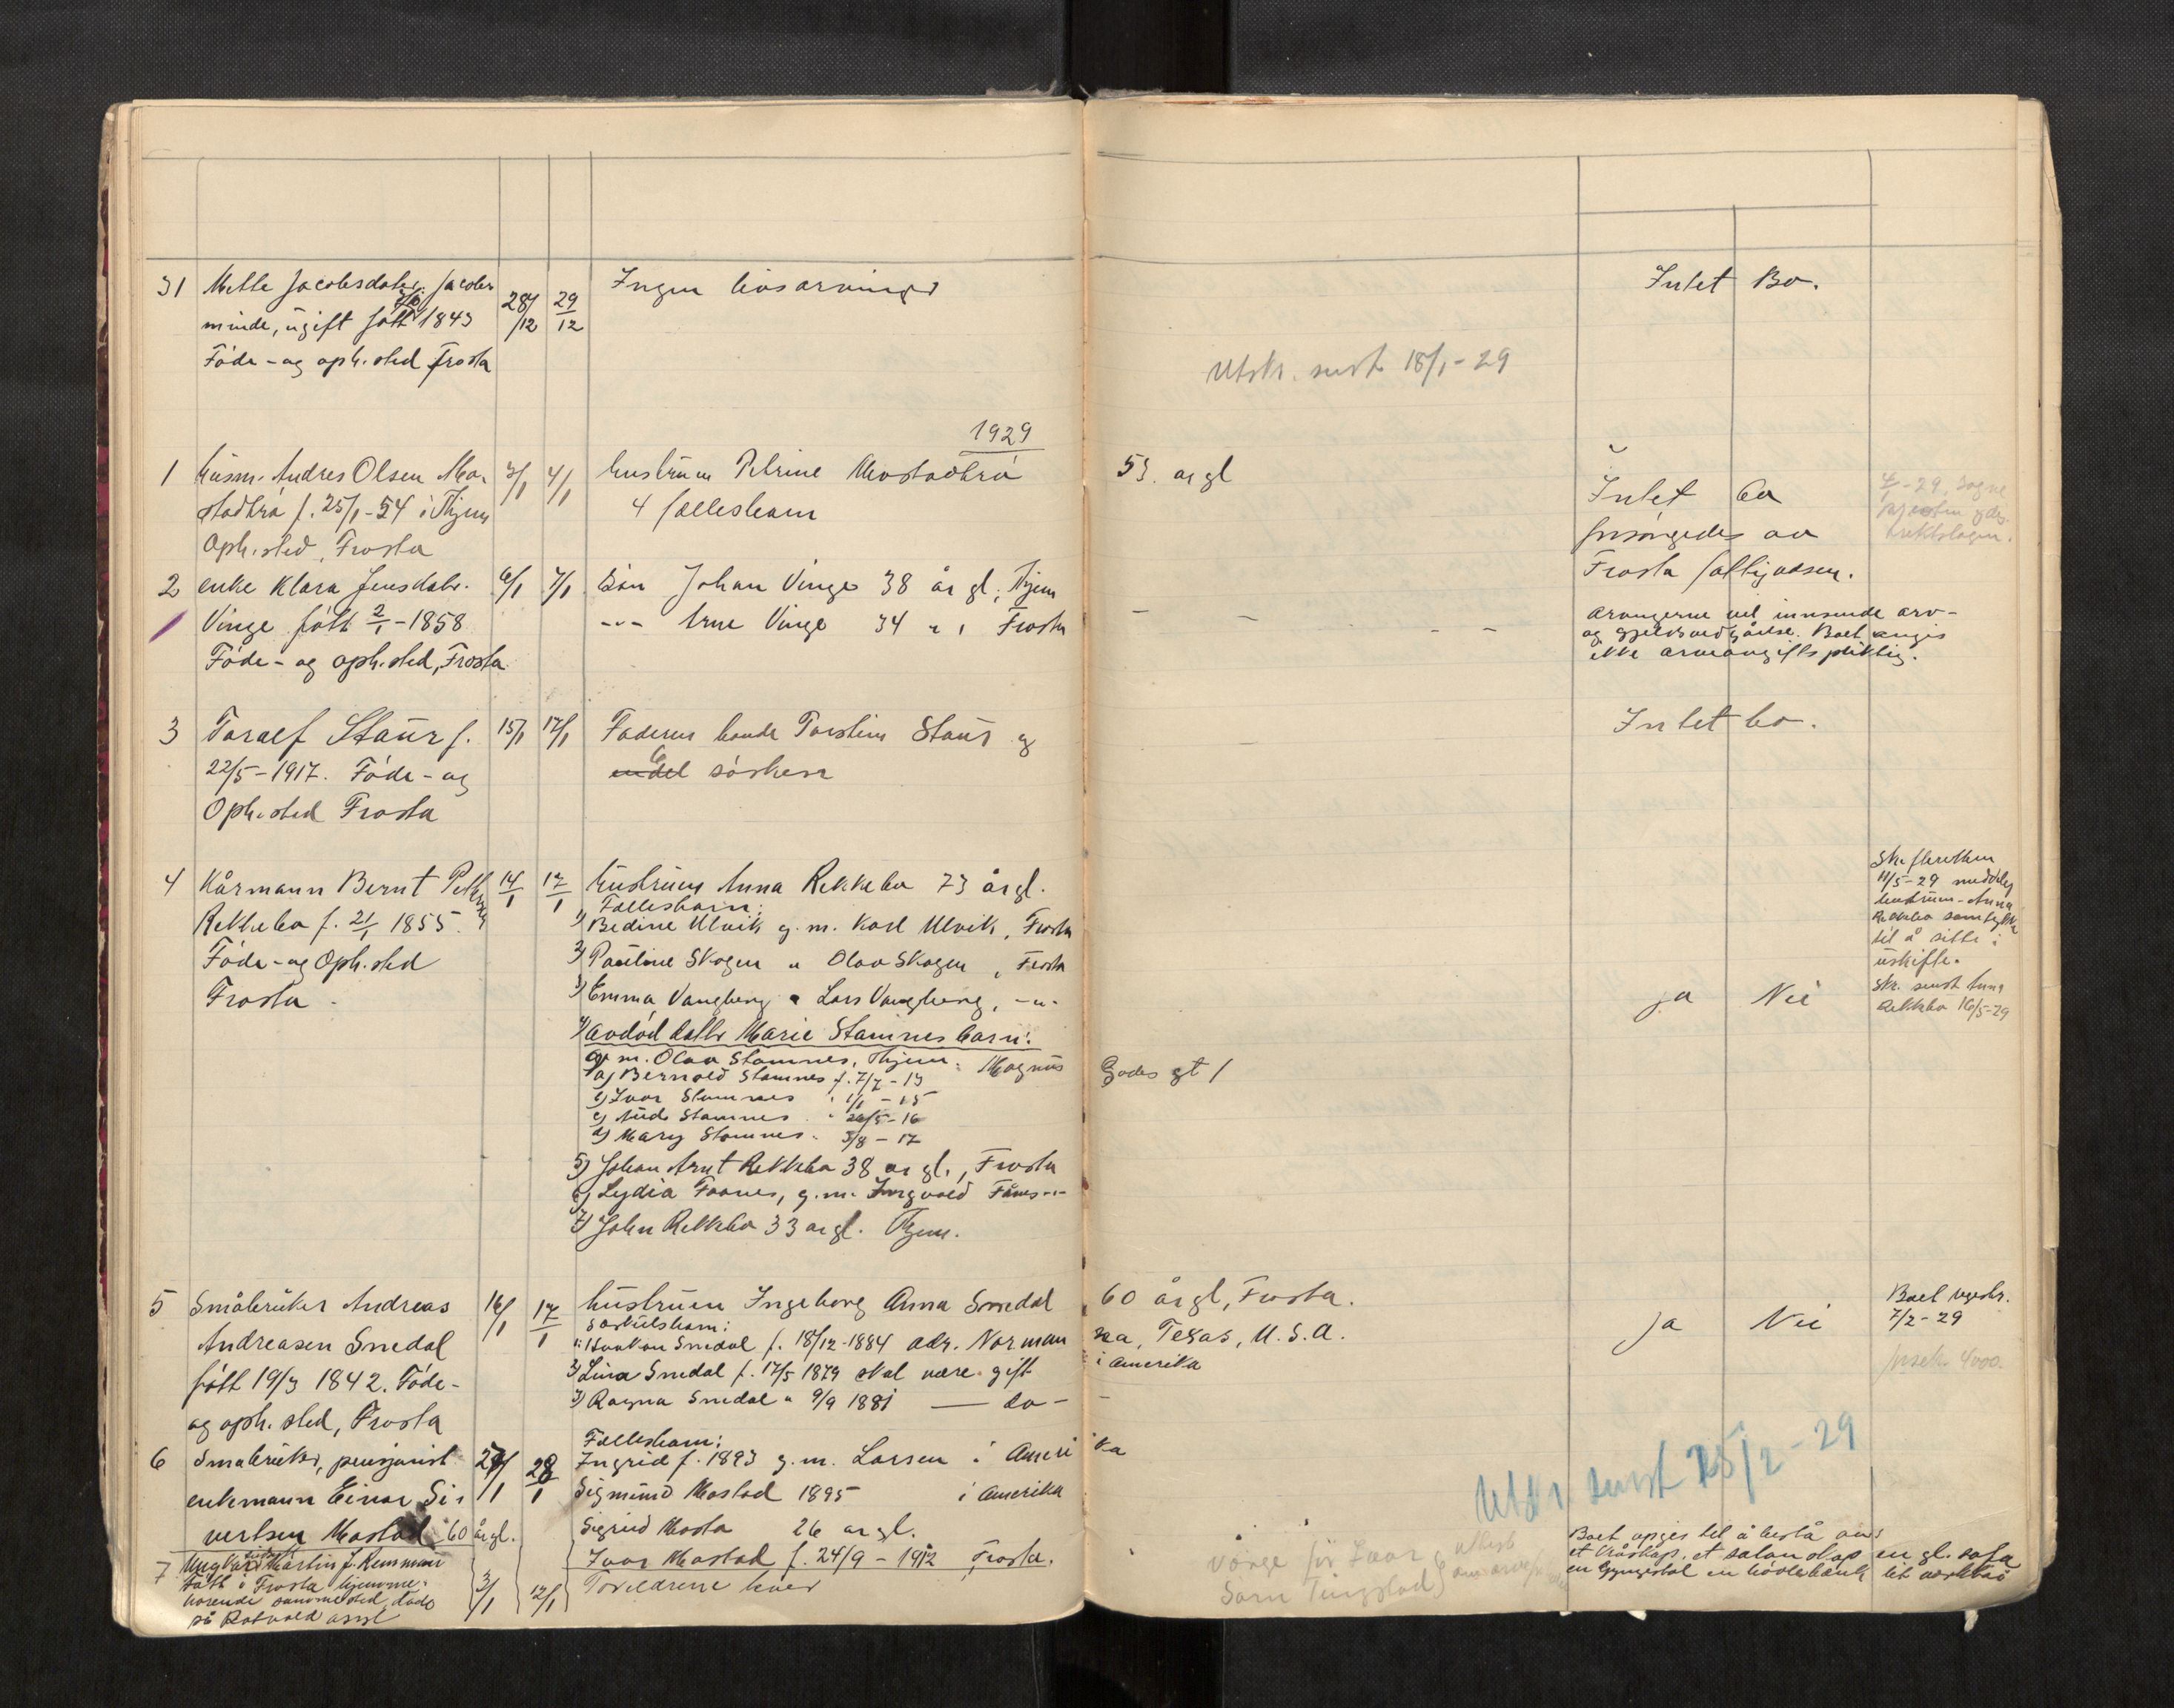 31 Mette Jacobsdatr. Jacobs
minde, ugift født 1843
Føde- og oph. sted Frosta
28/12 29/12
Ingen livsarvinger
Intet Bo.
Utskr. sendt 18/1-29
1929
1 husm. Andres Olsen Mo-
stadtrå f. 25/1-54 i Thjem
Oph. sted, Frosta
3/1 4/1
hustruen Petrine Mostadtrø 53. ar gl
4 fællesbarn
Intet bo
forsørgedes av
Frosta fattigvæsen.
4/1-29. Sogne
2 enke Klara Jensdatr.
Vinge født 2/1-1858
Føde- og oph. sted, Frosta
6/1 7/1
Søn Johan Vinge 38 år gl,
-"- Arne Vinge 34 " , Frosta
Arvingerne vil innsende arv-
og gjeldsvedgåelse. Boet angis
ikke arveavgiftspliktig.
3 Toralf Staur f.
22/5-1917. Føde- og
Oph. sted Frosta
15/1 17/1
Faderen bonde Torstein Staur og
endel 6 søsken
Intet bo.
4 Kårmann Bernt
Rekkebo f. 21/1 1855.
Føde- og Oph. sted
Frosta
14/1 17/1
hustruen Anna Rekkebo 73 år gl.
Fællesbarn:
1) Bredine Ulvik g. m. Karl Ulvik, Frosta
2) Pauline Skogen " Olav Skogen, Frosta
3) Emma Vangberg " Lars Vangberg, -"-
4) avdød dattr Marie Stamnes barn:
g. m. Olav Stamnes, : Magnus
a) Bernold Stamnes f. 7/7-13
b) Ivar Stamnes " 1/1-15
c) Aud Stamnes " 26/5-16
d) Mary Stamnes " 5/8-17
5) Johan Arnt Rekkebo 38 ar gl., Frosta
6) Lydia Faanes, g. m. Ingvald Fånes -"-
7) John Rekkebo 33 ar gl.
ja Nei
Skifteretten
11/5-29 meddelt
hustruen Anna
Rekkebo samtykke
til å sitte i
uskifte.
Skr. sendt Anna
Rekkebo 16/5-29
5 Småbruker Andreas
Andreasen Smedal
født 19/3 1842. Føde-
og oph. sted, Frosta
16/1 17/1
hustruen Ingeborg Anna Smedal, 60 år gl, Frosta.
Særkulsbarn:
1) Haakon Smedal f. 18/12-1884 adr. Norman na, Texas, U.S.A.
2) Lina Smedal f. 17/5 1879 skal være gift i Amerika
3) Ragna Smedal " 9/9 1881 — do -
ja Nei
Boet
7/2-29
4000.
6 Småbruker, pensjonist
enkemann Einar Si-
vertsen Mostad 60 år gl.
27/1 28/1
Fællesbarn:
Ingrid f. 1893 g. m. Larsen i Amerika
Sigmund Mostad 1895 i Amerika
Sigrud Mosta 26 ar gl.
Ivar Mostad f. 24/9-1912, Frosta.
Utskr. sendt 15/2-29
Værge for Ivar
Boet opgis til å bestå av
et kråskap, et salonskap en gl. sofa
en Gyngestol en høvlebænk litt verktøi
7 Martin J.
født i Frosta hjemme-
hørende samme sted, døde
på Rotvold asyl
3/1 12/1
Foreldrene lever